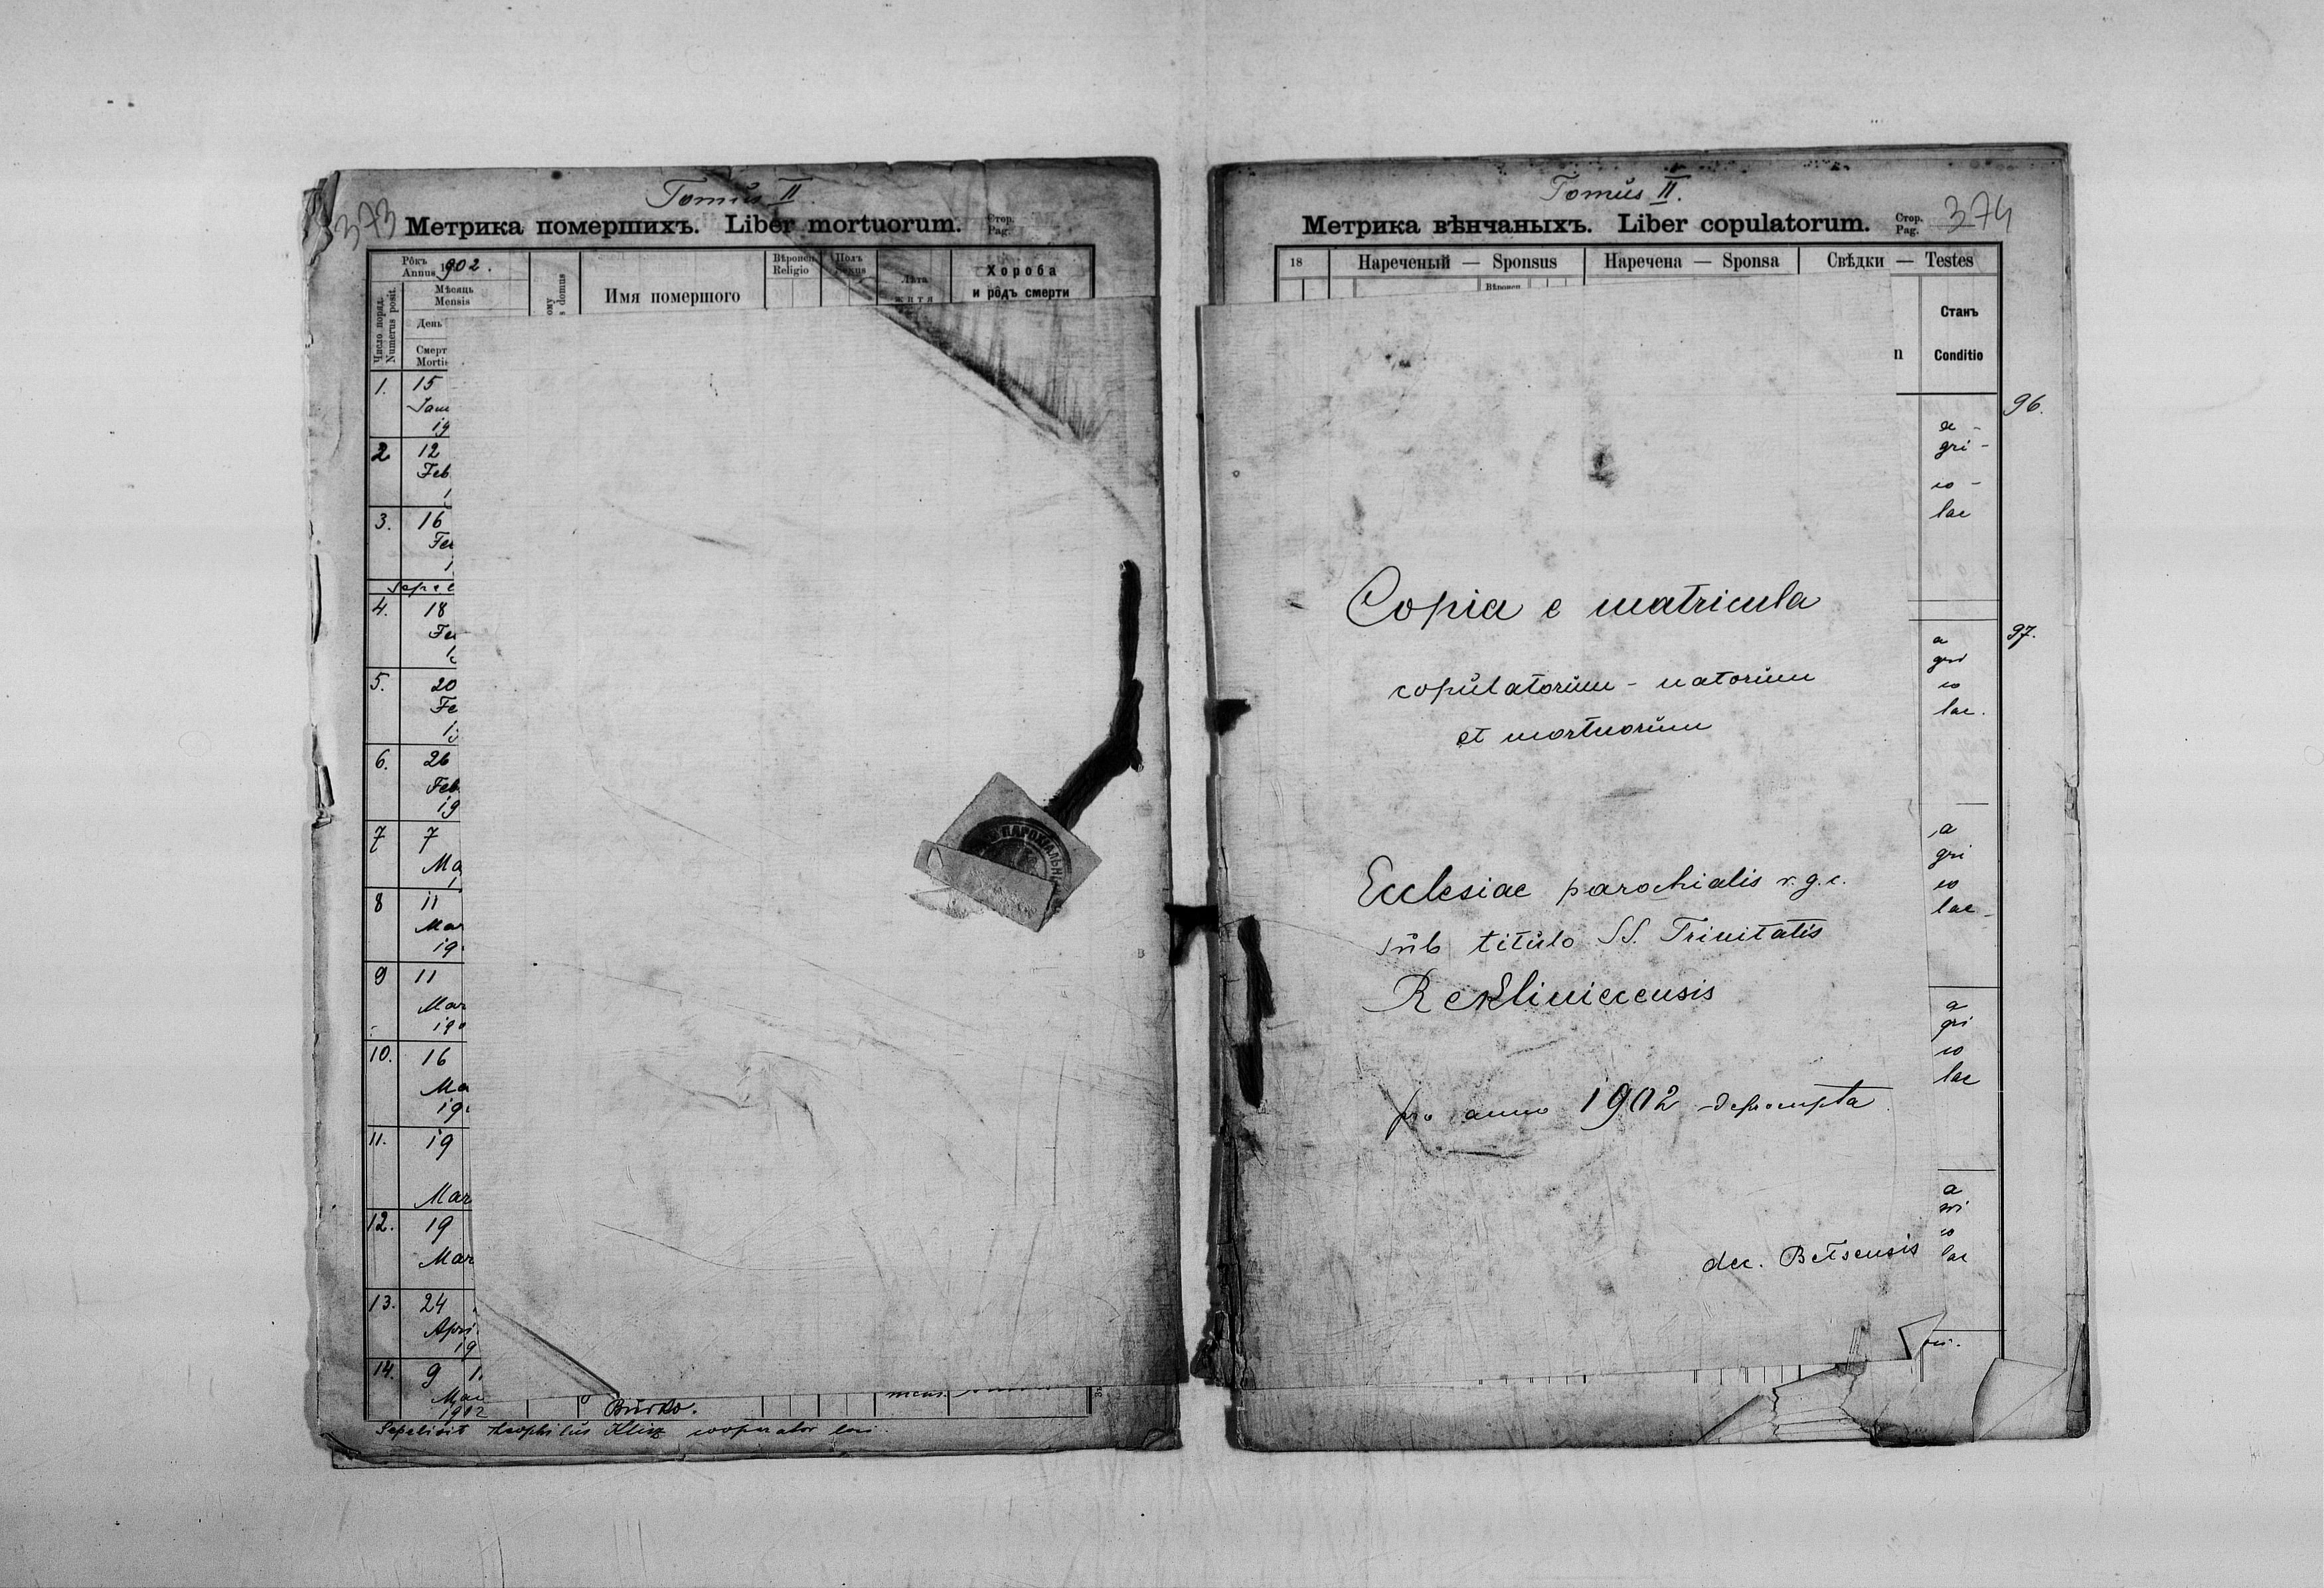 Tomus II.
373
Метрика помершихъ. Liber mortuorum.
Стор.
Pag.
Рôкъ
Annus 1902.
Мѣсяць
Mensis
День
Смерт
Morti
Число поряд.
Numerus posit.
domus
Имя помершого
Вѣроисп.
Religio
Полъ
Sexus
Лѣта
житя
Хороба
и рôдъ смерти
1. 15
Janu
19
2 12
Feb
1
3. 16
Feb
1
Sepel
4. 18
Fe
5. 20
Fe
6. 26
Feb
19
7 7
Ma
1
8 11
Mar
19
9 11
Mar
190
10. 16
Ma
19
11. 19
Mar
12. 19
Mar
13. 24
Apri
19
14. 9
Mai
1902
Burko.
Sepelivit Theophilus Klisz cooperator loci.
ПАРОХІАЛЬН
Tomus II.
Метрика вѣнчаныхъ. Liber copulatorum.
Стор.
Pag.
374
18
Нареченый — Sponsus
Наречена — Sponsa
Свѣдки — Testes
Вѣроисп.
Станъ
n Conditio
96.
gri -
co -
lae
97.
a
gri
co
lae.
a
gri
co
lae
a
gri
co
lae
a
gri
co
lae
Copia e matricula
copulatorum - natorum
et mortuorum
Ecclesiae parochialis r. g. c.
sub titulo SS. Trinitatis
Rekliniecensis
pro anno 1902 deprompta
dec. Belsensis